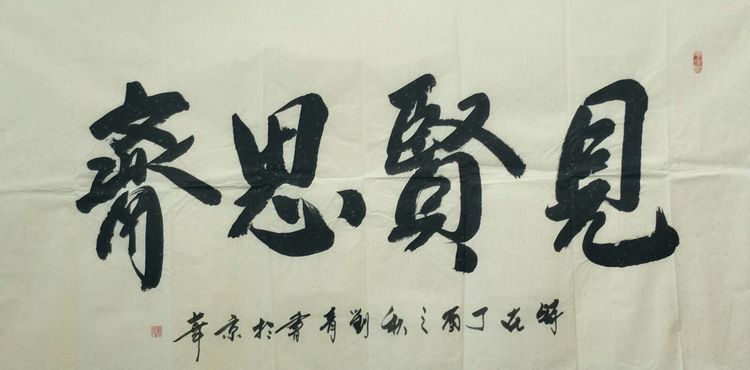 見賢思齊
在丁酉之秋劉書於京華